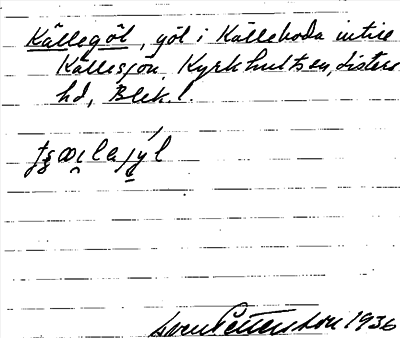 Källegöl, göl i Källeboda intill
Källesjön, Kyrkhults sn, Listers
hd, Blek.
Sven Pettersson 1936